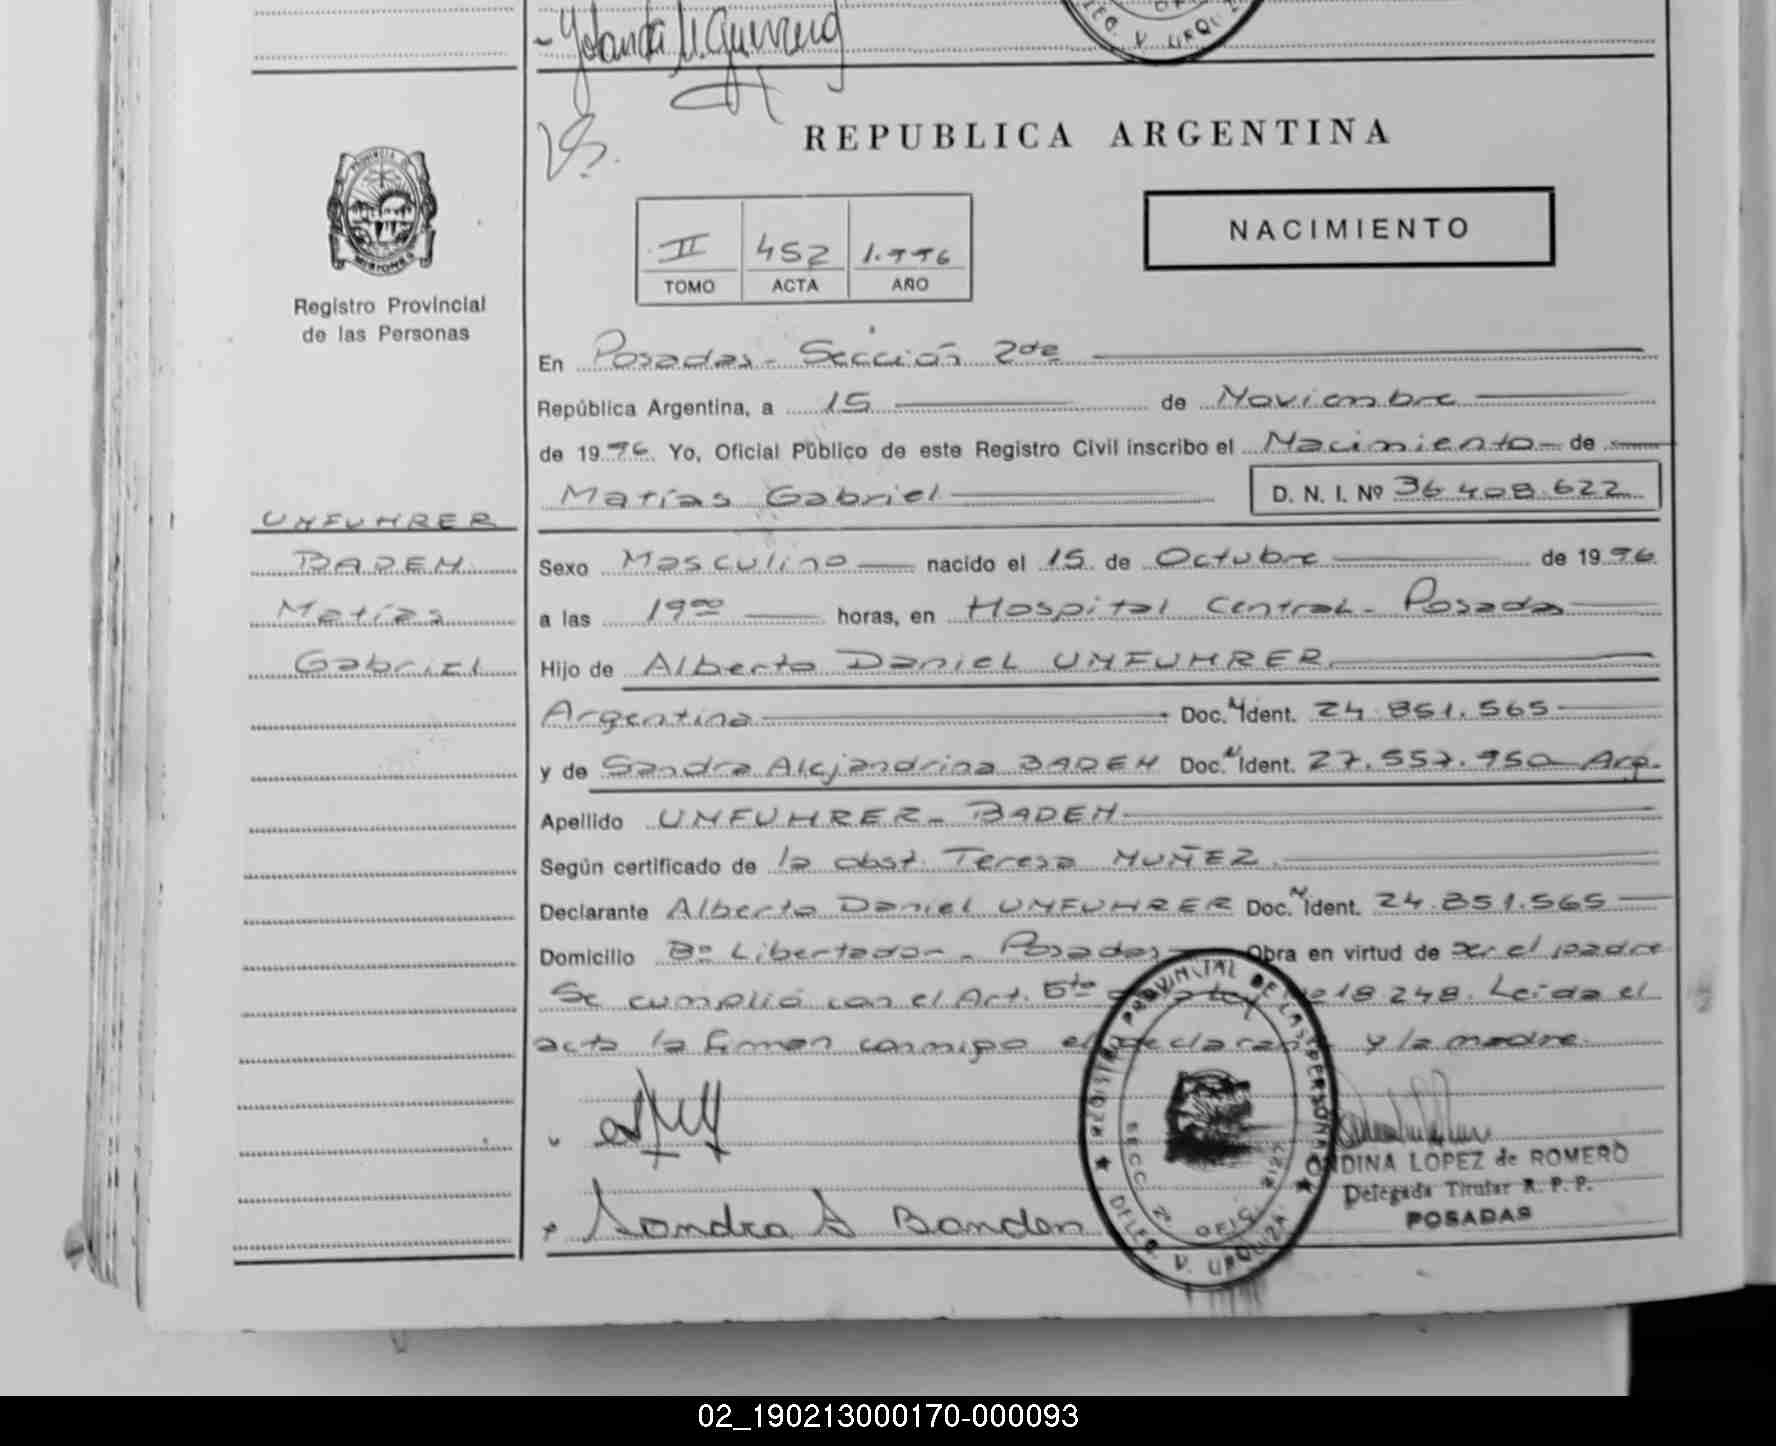 Yolanda
DELEG. V. URQUIZA
REPUBLICA ARGENTINA
PROVINCIA DE MISIONES
Registro Provincial
de las Personas
NACIMIENTO
II 452 1.996
TOMO ACTA AÑO
En Posadas - Sección 2da
República Argentina, a 15 de Noviembre
de 1996. Yo, Oficial Público de este Registro Civil inscribo el Nacimiento de
Matías Gabriel D. N. I. Nº 36.408.622
UMFUHRER
BADEN
Matías
Gabriel
Sexo Masculino nacido el 15 de Octubre de 1996
a las 19 00 horas, en Hospital Central - Posadas
Hijo de Alberto Daniel UMFUHRER
Argentina Doc. N Ident. 24.851.565
y de Sandra Alejandrina BADEN Doc. N Ident. 27.557.950 Arg.
Apellido UMFUHRER - BADEN
Según certificado de la obst. Teresa MUÑEZ
Declarante Alberto Daniel UMFUHRER Doc. N Ident. 24.851.565
Domicilio Bº Libertador - Posadas Obra en virtud de ser el padre
Se cumplió con el Art. 5to de la Ley 18.248. Leída el
acta la firman conmigo el declarante y la madre.
REGISTRO PROVINCIAL DE LAS PERSONAS
SECC. 2ª OFIC.
DELEG. V. URQUIZA
Sandra A Bandon
ONDINA LOPEZ de ROMERO
Delegada Titular R. P. P.
POSADAS
02_190213000170-000093